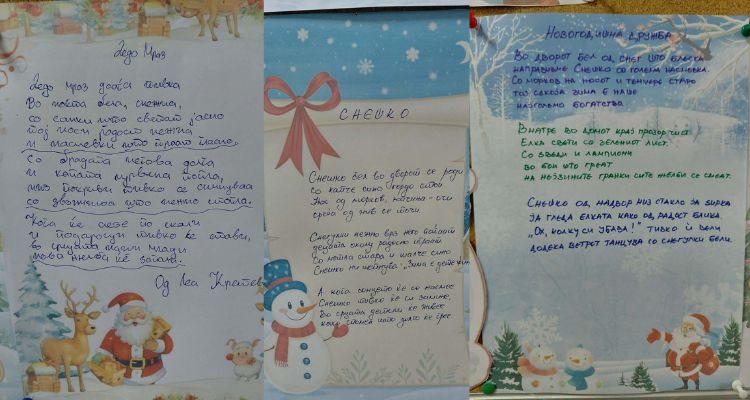 Дедо Мраз
Дедо Мраз доаѓа тивко
Во ноќта бела, снежна,
со санки што светат јасно
тој носи радост нежна
и насмевки што траат
Со брадата негова долга
и капата црвена топла,
низ покриви тивко се симнува
со ѕвончиња што нежно
Кога ќе слезе по скали
и подароци тивко ќе стави,
во срцата наши млади
нова желба ќе запали.
Од Леа
СНЕШКО
Снешко бел во дворот се роди
со капче сино гордо стои
Нос од морков, копчиња - очи
среќа од нив се точи.
Снегулки нежно врз него паѓаат
децата околу радосно играат
Со метла стара и шалче сино
Снешко ни шепнува "Зима е
А кога сонцето ќе се насмее
Снешко тивко ќе си замине,
Во срцата детски ќе живее
како спомен што долго ќе грее.
НОВОГОДИШНА ДРУЖБА
ВО ДВОРОТ БЕЛ ОД СНЕГ ШТО БЛЕСКА
НАПРАВИВМЕ СНЕШКО СО ГОЛЕМА НАСМЕВКА.
СО МОРКОВ НА НОСОТ И ТЕНЏЕРЕ СТАРО
ТОЈ СЕКОЈА ЗИМА Е НАШЕ
НАЈГОЛЕМО БОГАТСТВО.
ВНАТРЕ ВО ДОМОТ КРАЈ ПРОЗОР ЧИСТ
ЕЛКА СВЕТИ СО ЗЕЛЕНИОТ ЛИСТ.
СО ЅВЕЗДИ И ЛАМПИОНИ
ВО БОИ ШТО ГРЕАТ
НА НЕЈЗИНИТЕ ГРАНКИ СИТЕ ЖЕЛБИ СЕ СМЕАТ.
СНЕШКО ОД НАДВОР НИЗ СТАКЛО ЈА ЅИРКА
ЈА ГЛЕДА ЕЛКАТА КАКО ОД РАДОСТ БЛИКА.
"ОХ, КОЛКУ СИ УБАВА!" ТИВКО Ѝ ВЕЛИ
ДОДЕКА ВЕТРОТ ТАНЦУВА СО СНЕГУЛКИ БЕЛИ.